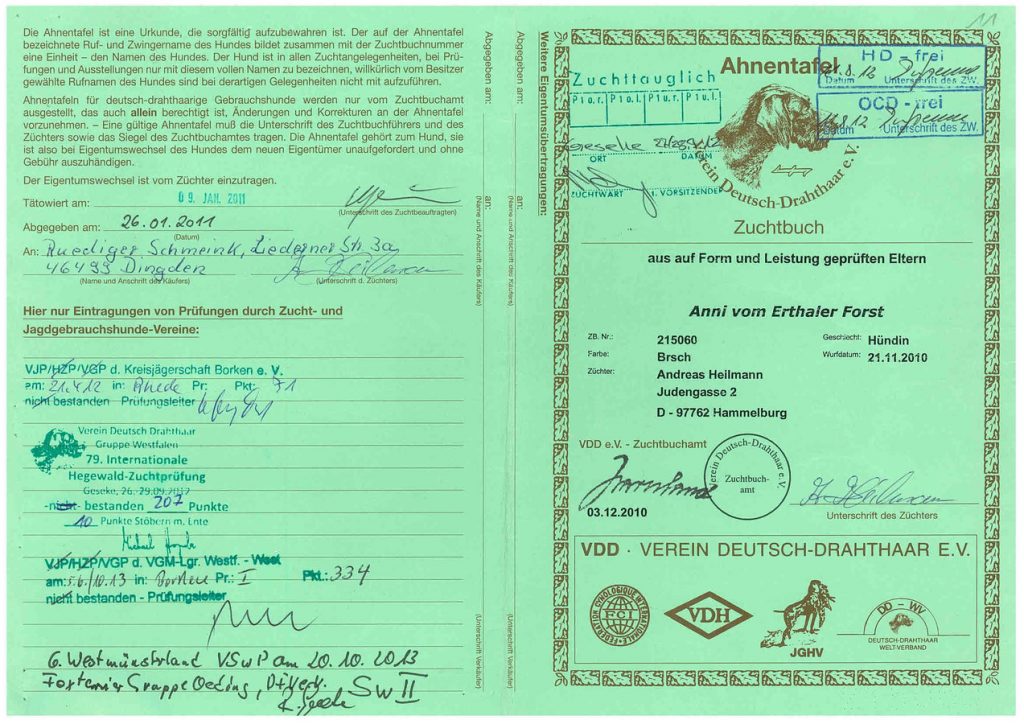 Die Ahnentafel ist eine Urkunde, die sorgfältig aufzubewahren ist. Der auf der Ahnentafel
bezeichnete Ruf- und Zwingername des Hundes bildet zusammen mit der Zuchtbuchnummer
eine Einheit – den Namen des Hundes. Der Hund ist in allen Zuchtangelegenheiten, bei Prü-
fungen und Ausstellungen nur mit diesem vollen Namen zu bezeichnen, willkürlich vom Besitzer
gewählte Rufnamen des Hundes sind bei derartigen Gelegenheiten nicht mit aufzuführen.
Ahnentafeln für deutsch-drahthaarige Gebrauchshunde werden nur vom Zuchtbuchamt
ausgestellt, das auch allein berechtigt ist, Änderungen und Korrekturen an der Ahnentafel
vorzunehmen. – Eine gültige Ahnentafel muß die Unterschrift des Zuchtbuchführers und des
Züchters sowie das Siegel des Zuchtbuchamtes tragen. Die Ahnentafel gehört zum Hund, sie
ist also bei Eigentumswechsel des Hundes dem neuen Eigentümer unaufgefordert und ohne
Gebühr auszuhändigen.
Der Eigentumswechsel ist vom Züchter einzutragen.
Tätowiert am: 09. JAN. 2011
(Unterschrift des Zuchtbeauftragten)
Abgegeben am: 26.01.2011
(Datum)
An: Ruediger Schmeink, Liederner Str. 3a,
46499 Dingden
(Name und Anschrift des Käufers) (Unterschrift d. Züchters)
Hier nur Eintragungen von Prüfungen durch Zucht- und
Jagdgebrauchshunde-Vereine:
VJP/HZP/VGP d. Kreisjägerschaft Borken e. V.
am: 21.4.12 in: Rhede Pr: Pkt: 71
nicht bestanden Prüfungsleiter
Verein Deutsch Drahthaar
Gruppe Westfalen
79. Internationale
Hegewald-Zuchtprüfung
Geseke, 26.-29.09.2012
-nicht- bestanden 207 Punkte
10 Punkte Stöbern m. Ente
VJP/HZP/VGP d. VGM-Lgr. Westf. - West
am: 5.6./10.13 in: Borken Pr.: I Pkt.: 334
nicht bestanden - Prüfungsleiter
6. Westmünsterland VSwP am 20.10.2013
Gruppe Oeding,
Sw II
Abgegeben am:
an:
(Name und Anschrift des Käufers)
(Unterschrift Verkäufer)
Abgegeben am:
an:
(Name und Anschrift des Käufers)
(Unterschrift Verkäufer)
Weitere Eigentumsübertragungen:
11
Ahnentafel
HD - frei
Datum Unterschrift des ZW.
OCD - frei
Datum Unterschrift des ZW.
Zuchttauglich
P1o.r. P1o.l. P1u.r. P1u.l.
Geseke
ORT DATUM
ZUCHTWART 1. VORSITZENDER
Verein Deutsch-Drahthaar e.V.
Zuchtbuch
aus auf Form und Leistung geprüften Eltern
Anni vom Erthaler Forst
ZB. Nr.: 215060 Geschlecht: Hündin
Farbe: Brsch Wurfdatum: 21.11.2010
Züchter: Andreas Heilmann
Judengasse 2
D - 97762 Hammelburg
VDD e.V. - Zuchtbuchamt
Verein Deutsch-Drahthaar e.V.
Zuchtbuch-
amt
03.12.2010
Unterschrift des Züchters
VDD · VEREIN DEUTSCH-DRAHTHAAR E.V.
FEDERATION CYNOLOGIQUE INTERNATIONALE
FCI
VDH
JGHV
DD - WV
DEUTSCH-DRAHTHAAR
WELT-VERBAND